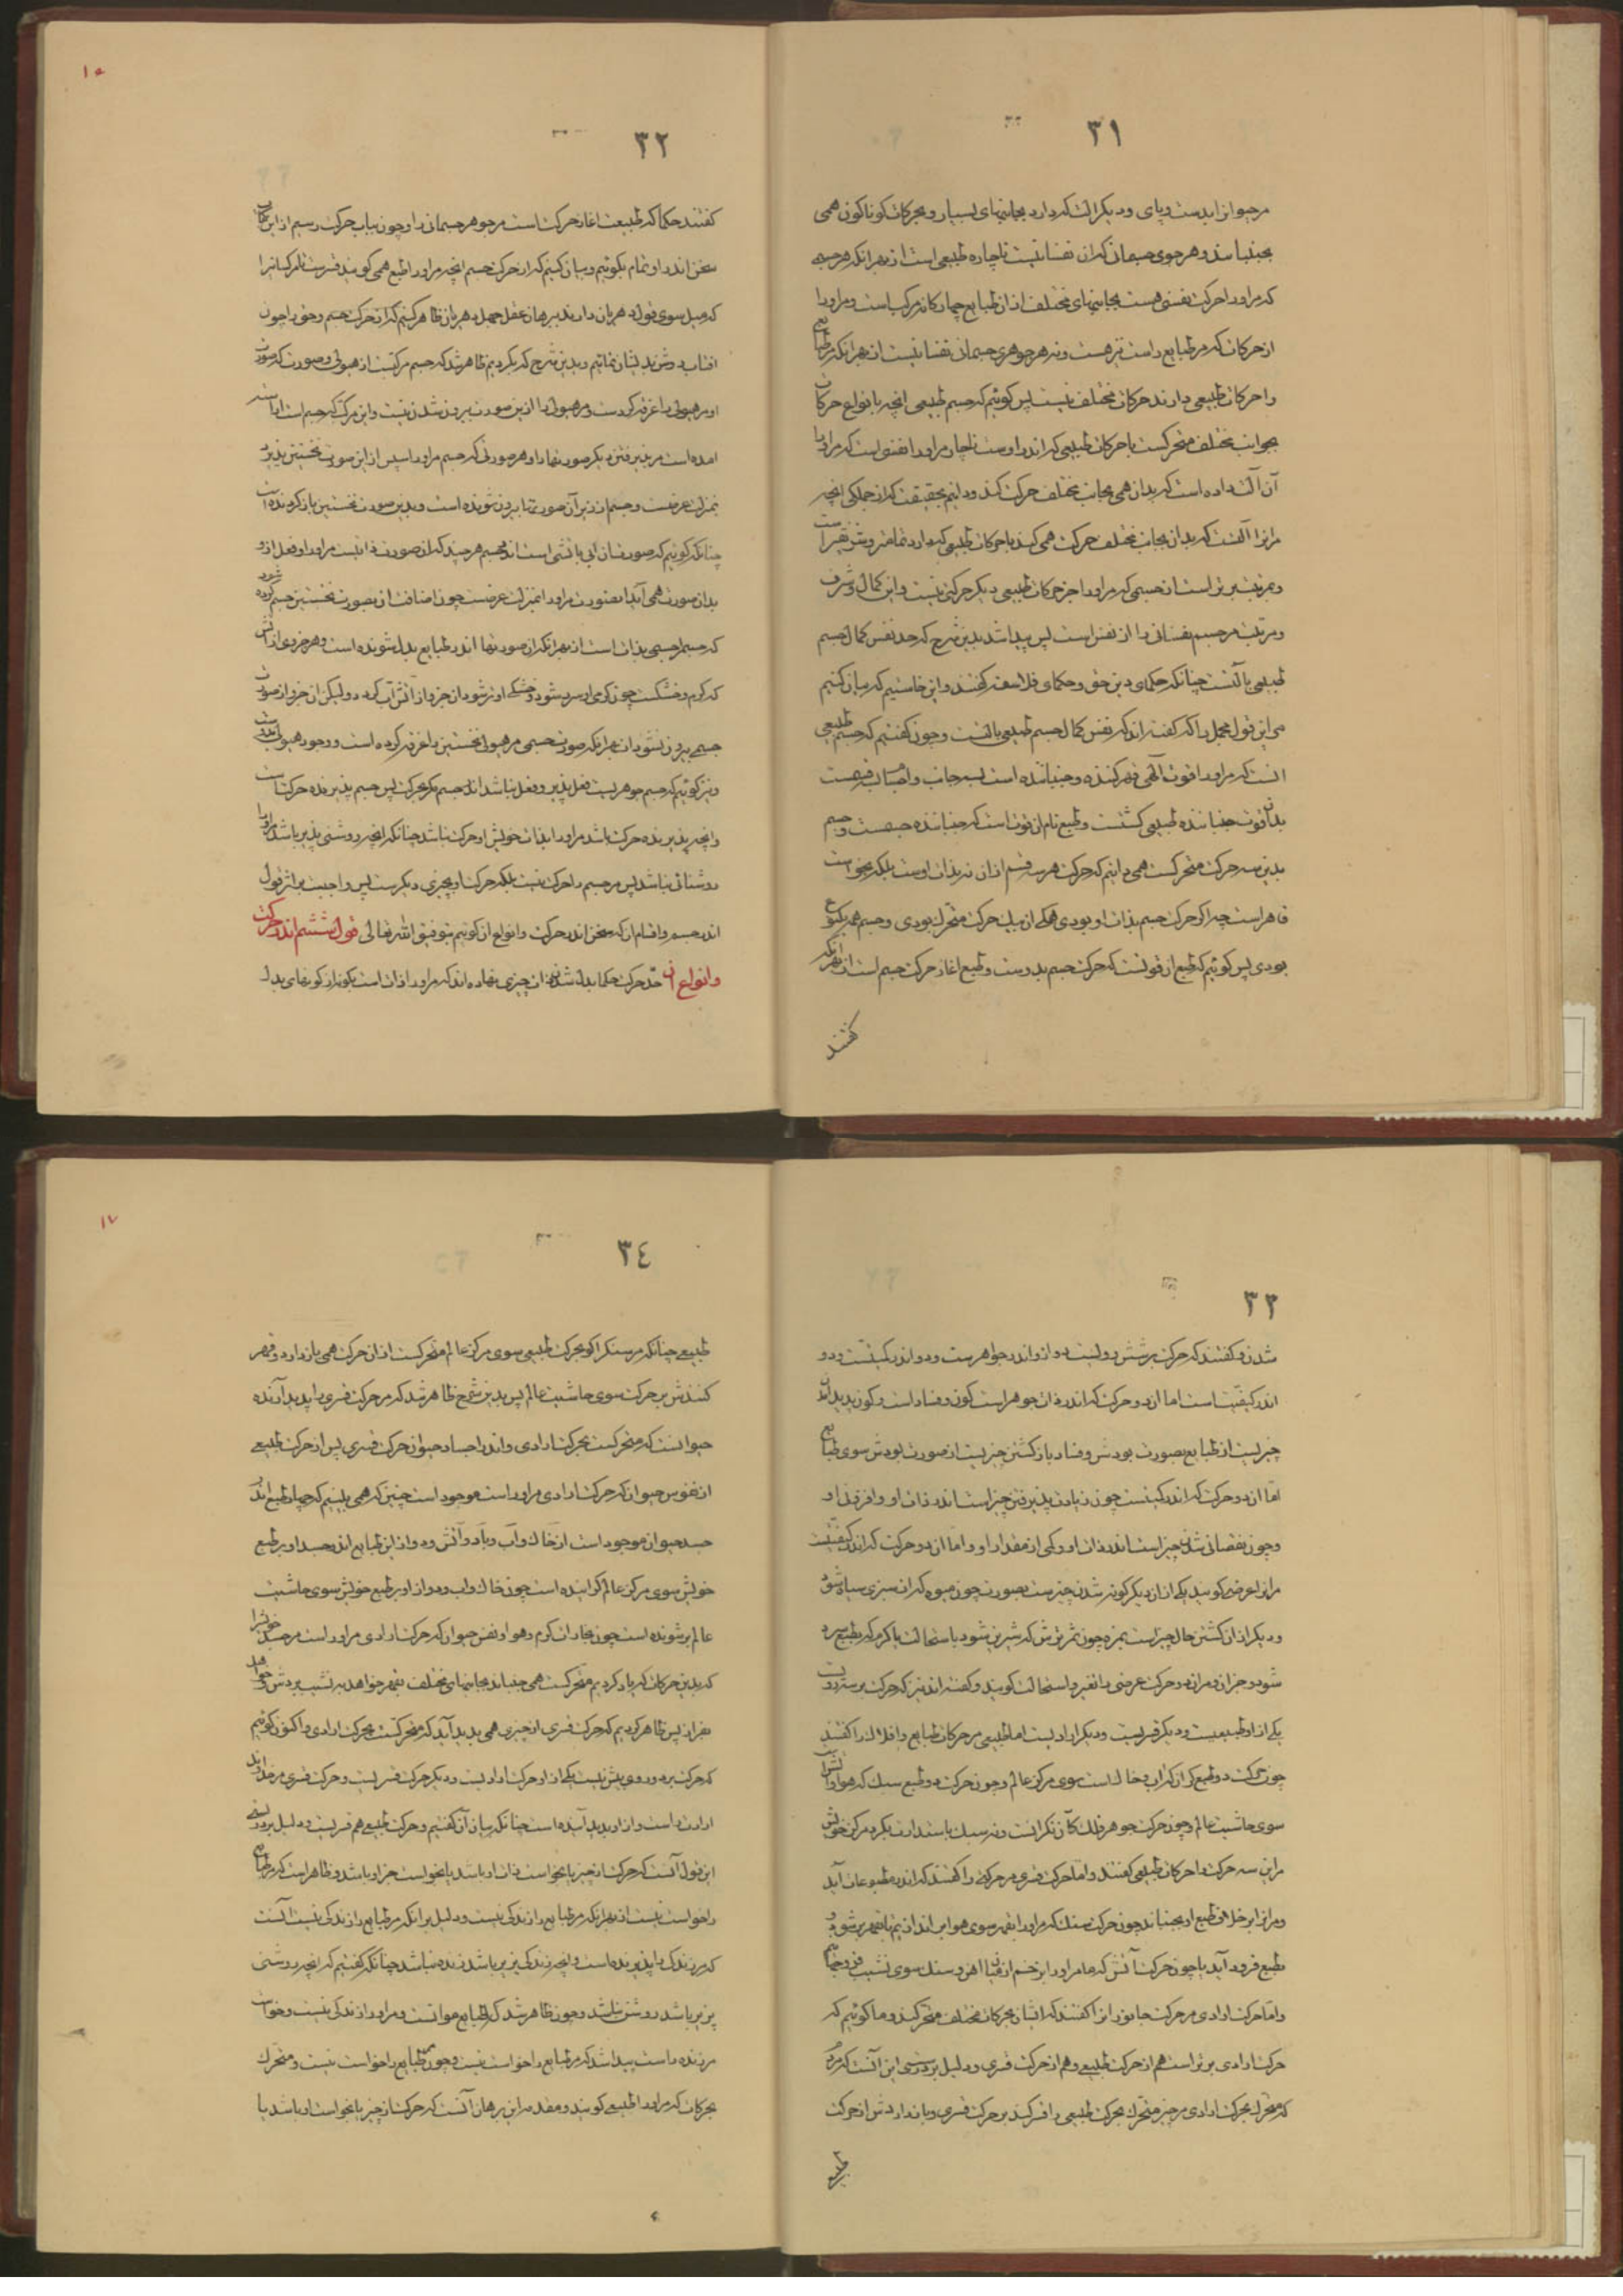 ٣١
مر حیوان را بدست و پای و دیگر آلت که دارد بجانبهای بسیار و بحرکات گوناگون همی
بجنباند و هر جوی جسمانی که آن نفسانی نیست ناچاره طبیعی است از بهر آنکه هر جسمی
که مر او را حرکت نفسی هست بجانبهای مختلف از آن طبایع چهارگانه مرکب است و مر او را
از حرکات که مر طبایع راست نیز هست و نه هر جوهری جسمانی نفسانیست از بهر آنکه مر طبایع
را حرکات طبیعی دارند حرکات مختلف نیست پس گوئیم که جسم طبیعی آنچه بانواع حرکات
بجوانب مختلف متحرکست با حرکات طبیعی که اندر اوست ناچار مر او را نفس است که مر او را
آن آلت داده است که بدان همی بجانب مختلف حرکت کند و دانیم بحقیقت که از جملگی آنچه
مر او را آلتست که بدان بجانب مختلف حرکت همی کند با حرکات طبیعی که دارد تمامتر و شریفتر است
و بمرتبت برتر است از جسمی که مر او را جز حرکات طبیعی دیگر حرکتی نیست و این کمال و شرف
و مرتبت مر جسم نفسانی را از نفس است پس پیدا شد بدین شرح که حد نفس کمال جسم
طبیعی با آلتست چنانکه حکمای دین حق و حکمای فلاسفه گفتند و این خاستیم که بیان کنیم
مر این قول مجمل را که گفته اند که نفس کمال جسم طبیعی با آلتست و چون گفتیم که جسم طبیعی
آنست که مر او را قوت الهی قهر کننده و جنباننده است بسه جانب و
بدان قوت جنباننده طبیعی گشتست و طبع نام آن قوت است که جنباننده جسمست و جسم
بدین سه حرکت متحرکست همی دانیم که حرکت هر سه قسم از آن نه بذات اوست بلکه بخواست
قاهر است چه اگر حرکت جسم بذات او بودی همگی آن بیک حرکت متحرک بودی و جسم همه یکنوع
بودی پس گوئیم که طبع آن قوتست که حرکت جسم بدوست و طبع آغاز حرکت جسم است از بهر آنکه
گفتند
٣٢
گفتند حکما که طبیعت آغاز حرکت است مر جوهر جسمانی را و چون بباب حرکت رسیم از این کتاب
سخن اندر او تمام بگوئیم و بیان کنیم که از حرکت جسم آنچه مر او را طبع همی گویند قسر است مر کسانرا
که میل سوی قول دهریان دارند ببرهان عقل جهل دهریان ظاهر کنیم که از حرکت جسم و حق را چون
آفتاب روشن بدیشان نمائیم و بدین شرح که بکردیم ظاهر شد که جسم مرکبست از هیولی و صورت که صورت
او مر هیولی را غرقه کردست و مر هیولی را از این صورت بیرون شدن نیست و این مرکب که جسم است آراسته
آمده است مر پذیرفتن دیگر صورتها را و هر صورتی که جسم مر او را سپس از این صورت نخستین پذیرد
بمنزلت عرضست و جسم از زیر آن صورتها بیرون شونده است و بدین صورت نخستین باز گردنده است
چنانکه گوئیم که صورت نان آبی یا آتشی است اندر جسم هر چند که آن صورت ذاتیست مر او را و فعل از او
بدان صورت همی آید آن صورت مر او را بمنزلت عرضست چون اضافت آن بصورت نخستین جسم کرده شود
که جسم را جسمی بذات است از بهر آنکه آن صورتها اندر طبایع بدل شونده است و هر جزوی از آتش
که گرم و خشکست چون گرمی او سرد شود و خشکی او تر شود آن جزو از آتش آب گردد ولیکن آن جزو از صورت
جسمی بیرون نشود از بهر آنکه صورت جسمی مر هیولی نخستین را غرقه کرده است و وجود هیولی اندر اوست
و نیز گوئیم که جسم جوهریست فعل پذیر و فعل نباشد اندر جسم مگر بحرکت پس جسم پذیرنده حرکتست
و آنچه پذیرنده حرکت باشد مر او را بذات خویش او حرکت نباشد چنانکه آنچه روشنی پذیر باشد مر او را
روشنائی نباشد پس مر جسم را حرکت نیست بلکه حرکت او بچیزی دیگر ست پس واجبست بر اثر قول
اندر جسم و اقسام آن که سخن اندر حرکت و انواع آن گوئیم بتوفیق الله تعالی قول ششم اندر حرکت
و انواع آن حد حرکت حکما بدل شدن ذات چیزی نهاده اند که مر او را ذات است بگونه از گونهای بدل
٣٣
شدن و گفتند که حرکت بر شش رویست دو از او اندر جواهر ست و دو اندر کمیتست و دو
اندر کیفیت است اما آن دو حرکت که اندر ذات جوهر است کون و فساد است و کون پدید آمدن
چیزیست از طبایع بصورت بودش و فساد باز گشتن چیزیست از صورت بودش سوی طبایع
اما آن دو حرکت که اندر کمیتست چون زیادت پذیرفتن چیز است اندر ذات او و افزودن او
و چون نقصانی شدن چیز است اندر ذات او و کمی از مقدار او و اما آن دو حرکت که اندر کیفیتست
مر آنرا عرضی گویند یکی از آن دیگر گونه شدن چیز ست بصورت چون میوه که از سبزی سیاه شود
و دیگر از آن گشتن حال چیز است بمزه چون ترشی که شیرین شود با ستحالت یا گرم که بطبع سرد
شود و جز آن و مر آن دو حرکت عرضی را تغیر و استحالت گویند و گفته اند نیز که حرکت بر سه رویست
یکی از او طبیعیست و دیگر قسریست و دیگر ارادیست اما طبیعی مر حرکات طبایع و افلاک را گفتند
چون حرکت دو طبع گران که آب و خاک است سوی مرکز عالم و چون حرکت دو طبع سبک که هوا و آتش است
سوی حاشیت عالم و چون حرکت جوهر فلک کآن نه گرانست و نه سبک باستدارت بگرد مرکز خویش
مر این سه حرکت را حرکات طبیعی گفتند و اما حرکت قسری مر حرکتی را گفتند که اندر مطبوعات آید
و مر آنرا بر خلاف طبع او بجنباند چون حرکت سنگ که مر او را بقهر سوی هوا بر اندازیم تا بقهر بر شود و
بطبع فرود آید یا چون حرکت آتش که ما مر او را
و اما حرکت ارادی مر حرکت جانوران را گفتند که ایشان بحرکات مختلف متحرکند و ما گوئیم که
حرکت ارادی برتر است هم از حرکت طبیعی و هم از حرکت قسری و دلیل بر درستی این آنست که مر آن را
که متحرک بحرکت ارادی مر چیز متحرک بحرکت طبیعی را قسر کند بر حرکت قسری و باز داردش از حرکت
طبیعی
٣٤
طبیعی چنانکه مر سنگ را کو بحرکت طبیعی سوی مرکز عالم متحرکست از آن حرکت همی باز دارد و قهر
کنندش بر حرکت سوی حاشیت عالم پس بدین شرح ظاهر شد که مر حرکت قسری را پدید آرنده
حیوانست که متحرکست بحرکت ارادی و اندر اجساد حیوان حرکت قسری پس از حرکت طبیعی
از نفوس حیوان که حرکت ارادی مر او راست موجود است چنین که همی بینیم که چهار طبع اندر
جسد حیوان موجود است از خاک و آب و باد و آتش و دو از این طبایع اندر جسد او بر طبع
خویش سوی مرکز عالم گراینده است چون خاک و آب و دو از او بر طبع خویش سوی حاشیت
عالم بر شونده است چون بخارات گرم و هوا و نفس حیوان که حرکت ارادی مر او راست مر جسد خویش را
که بدین حرکات که یاد کردیم متحرکست همی جنباند بجانبهای مختلف بقهر خواهد به نشیب بردش و خواهد
بفراز پس ظاهر کردیم که حرکت قسری از چیزی همی پدید آید که متحرکست بحرکت ارادی و اکنون گوئیم
که حرکت بر دو روی بیش نیست یکی از او حرکت ارادیست و دیگر حرکت قسریست و حرکت قسری مر خداوند
ارادت راست و از او پدید آینده است چنانکه بیان آن گفتیم و حرکت طبیعی هم قسریست و دلیل بر درستی
این قول آنست که حرکت از چیز یا بخواست ذات او باشد یا بخواست جز او باشد و ظاهر است که مر طبایع
را خواست نیست از بهر آنکه مر طبایع را زندگی نیست و دلیل بر آنکه مر طبایع را زندگی نیست آنست
که مر زندگی را پذیرنده است و آنچه زندگی پذیر باشد زنده نباشد چنانکه گفتیم که آنچه روشنی
پذیر باشد روشن نباشد و چون ظاهر شد که طبایع مواتست و مر او را زندگی نیست و خواست
مر زنده راست پیدا شد که مر طبایع را خواست نیست و چون مر طبایع را خواست نیست و متحرک
بحرکات که مر او را طبیعی گویند و مقدمه این برهان آنست که حرکت از چیز یا بخواست او باشد یا